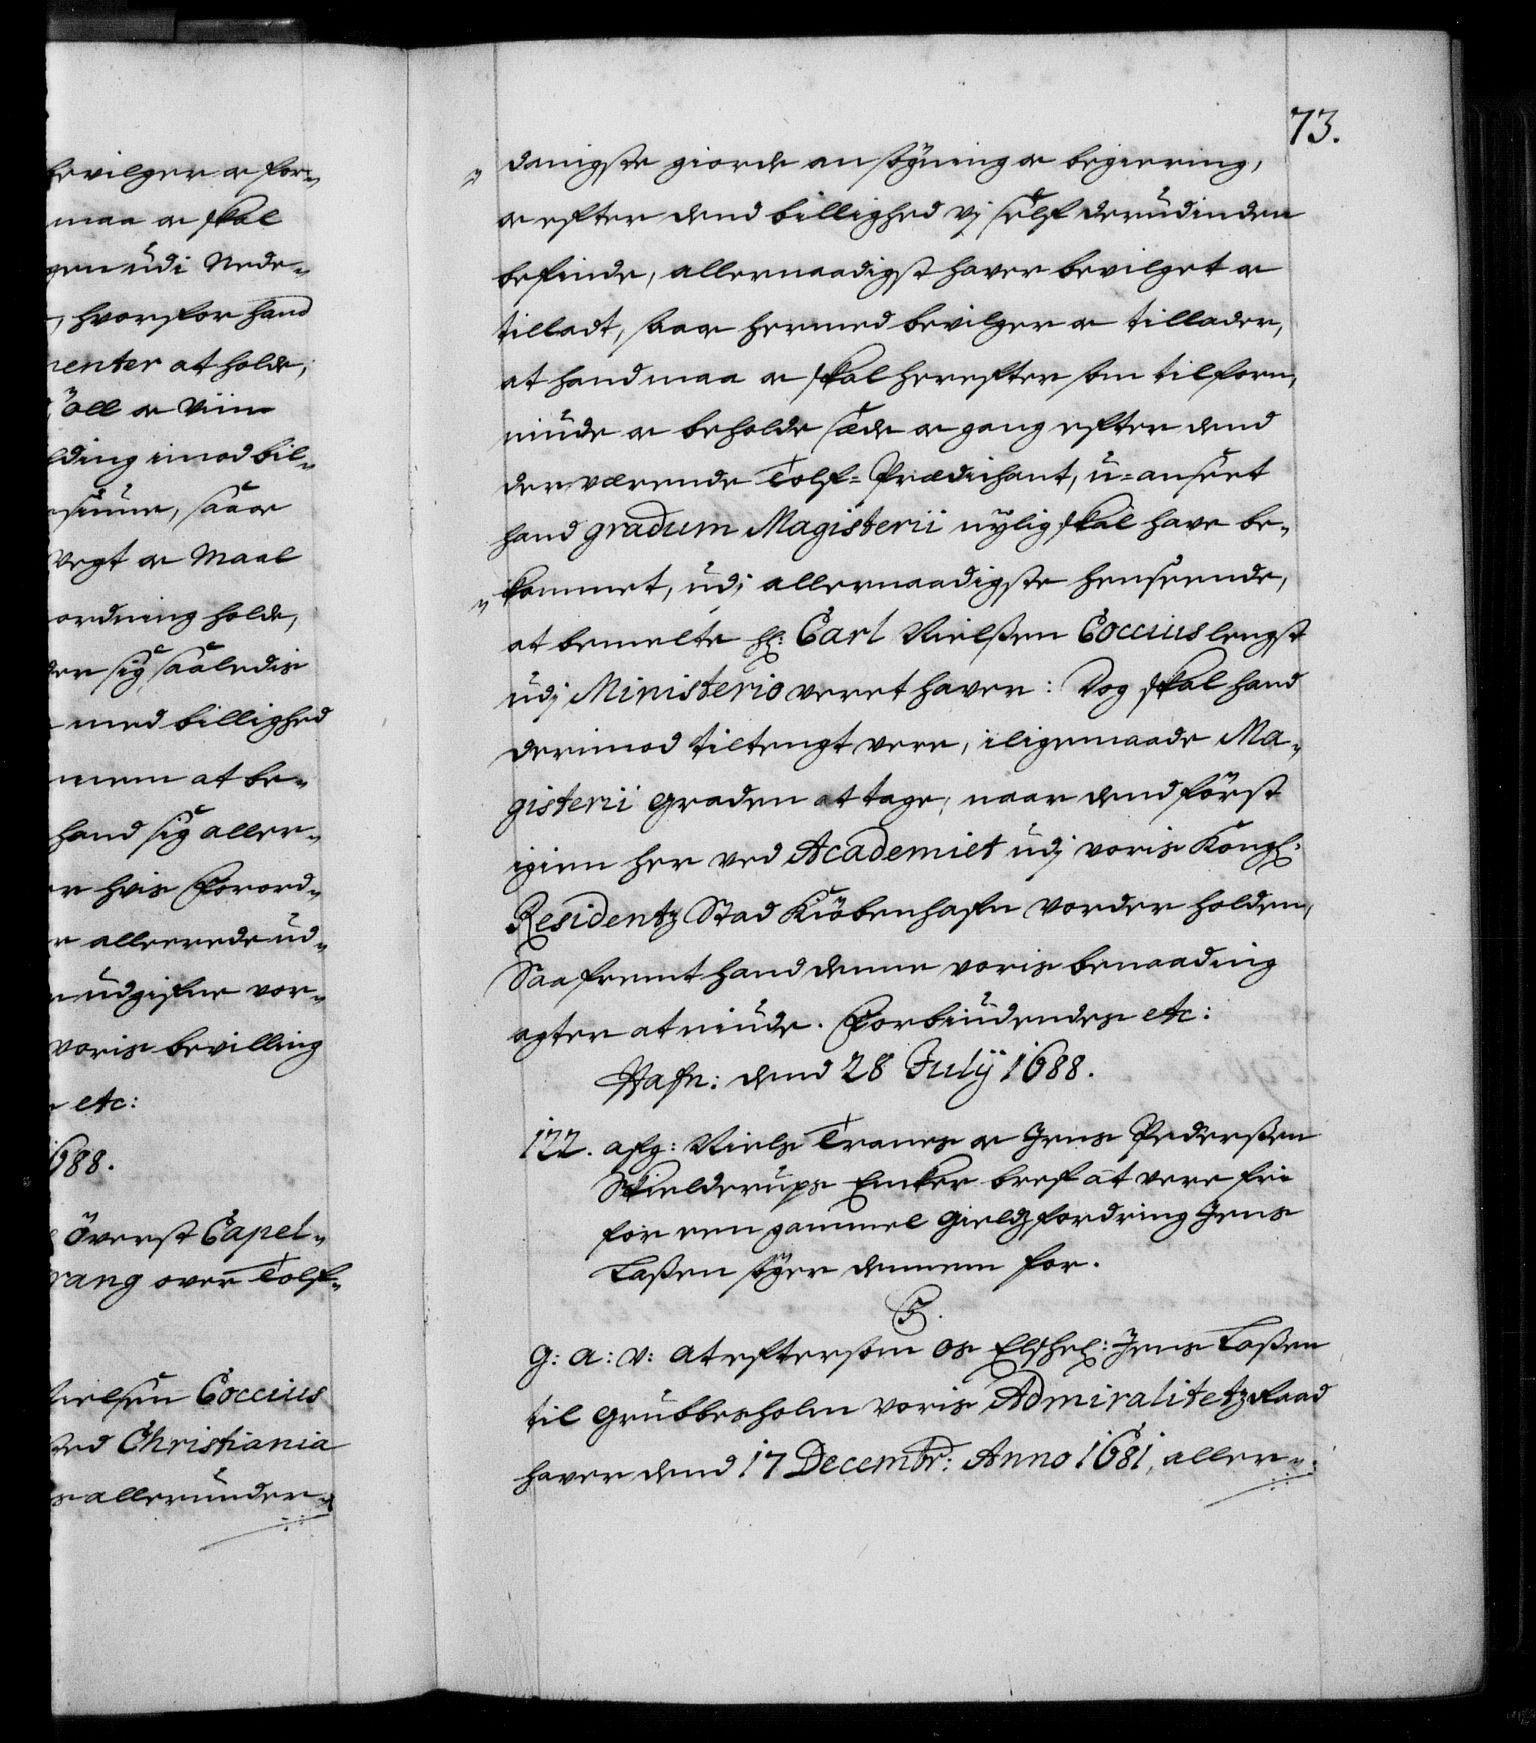 bevilger oc for-
maa oc skal
gen udi Nede-
, hvorfor hand
enter at holde,
öll oc Viin
lding imod bil-
siüne, saa oc
Vegt oc Maal
ordning holde,
der sig saaledis
med billighed
mem at be-
hand sig aller-
hvis Forord-
allerede ud-
udgifne vor-
voris bevilling
etc:
688.
överst Capel-
rang over Tolf-
Nielsen Coccius
ved Christiania
allerunder-
73.
danigste giorde ansøgning oc begiering,
oc efter dend billighed Vi self derudinden
befinde, allernaadigst haver bevilget oc
tilladt, saa oc hermed bevilger oc tillader,
at hand maa oc skal herefter som tilforn,
niude oc beholde sæde oc gang efter dend
der værende Tolf-Prædichant, u-anseet
hand gradum Magisterii nylig skal have be-
kommet, udj allernaadigste henseende,
at bemelte H: Carl Nielßen Coccius lengst
udj Ministerio veret haver: Dog skal hand
derimod tiltengt vere, iligemaade Ma-
gisterii graden at tage, naar dend först
igien her ved Academiet udj voris Kongl:
Residentz Stad Kiöbenhafn vorder holden,
Saafremt hand denne voris benaading
agter at niude. Forbiudendes etc:
Hafn: dend 28 Julij 1688.
122. afg: Niels Tranes oc Jens Pederßen
Skielderups Encker bref at vere fri
for een gammel gieldz fordring Jens
Laßen søger dennem for.
C5.
G: A: V: at eftersom os Elschel: Jens Laßen
til Grubbesholm voris Admiralitetz Raad
haver dend 17 Decembr: Anno 1681, aller-